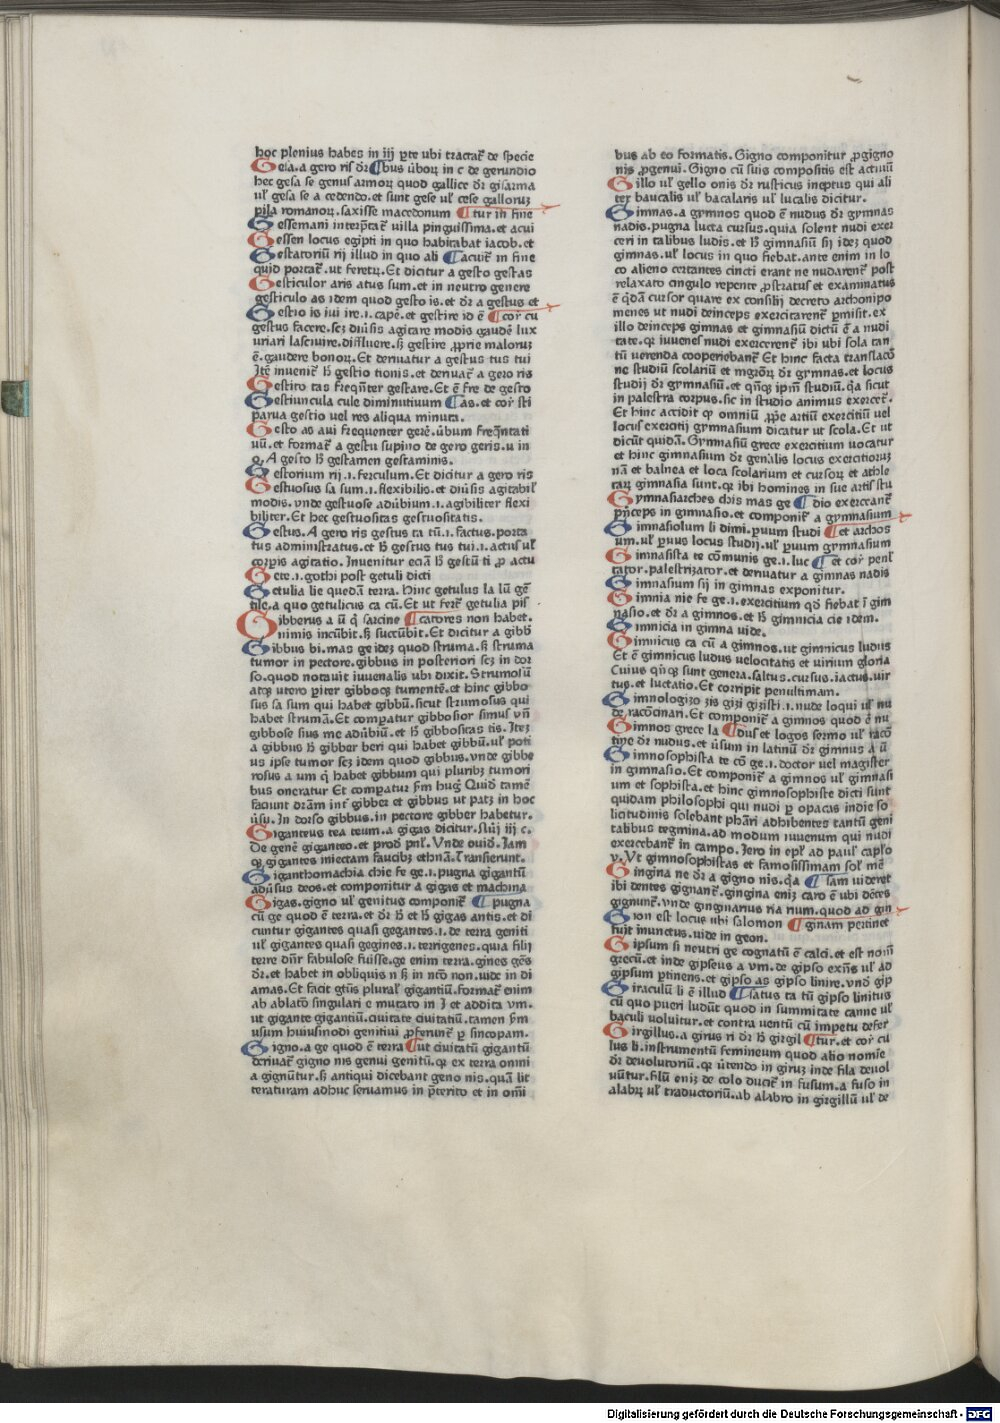 hoc plenius habes in iij ꝑte ubi tractat᷑ de specie
Gesa.a gero ris dr̄ ¶bus ūboꝝ in c de gerundio
hec gesa se genus armoꝝ quod gallice dr̄ gisarma
ul̓ gesa se a cedendo.et sunt gese ul̓ cese galloruꝫ
pila romanoꝝ.saxisse macedonum ¶tur in fine
Gessemani interp̄tat᷑ uilla pinguissima.et acui
Gessen locus egipti in quo habitabat iacob.et
Gestatoriū rij illud in quo ali ¶acuit᷑ in fine
quid portat᷑.ut feretꝝ.Et dicitur a gesto gestas
Gesticulor aris atus sum.et in neutro genere
gesticulo as idem quod gesto is.et dr̄ a gestus et
Gestio is iui ire.i.cape᷑.et gestire id ē ¶cor̄ cu
gestus facere.seꝫ diūsis agitare modis gaude᷑ lux
uriari lasciuire.diffluere.sꝫ gestire ꝓprie maloruꝫ
ē.gaudere bonoꝝ.Et deriuatur a gestus tus tui
Itē inuenit᷑ h̄ gestio tionis.et deriuat᷑ a gero ris
Gestito tas freqn̄ter gestare.Et ē fre de gesto
Gestiuncula cule diminutiuum ¶as.et cor̄ sti
parua gestio uel res aliqua minuta.
Gesto as aui frequenter gere᷑.ūbum freqn̄tati
uū.et format᷑ a gestu supino de gero geris.u in
o. A gesto h̄ gestamen gestaminis.
Gestorium rij.i.ferculum.Et dicitur a gero ris
Gestuosus sa sum.i.flexibilis.et diūsis agitabil̓
modis.vnde gestuose adūbium.i.agibiliter flexi
biliter.Et hec gestuositas gestuositatis.
Gestus.A gero ris gestus ta tū.i.factus.porta
tus administratus.et h̄ gestus tus tui.i.actus ul̓
corꝑis agitatio.Inuenitur eciā h̄ gestū ti ꝓ actu
Gete.i.gothi post getuli dicti
Getulia lie quedā terra.hinc getulus la lū gē
tile.a quo getulicus ca cū.Et ut fert᷑ getulia pis
Gibberus a ū q̄ sarcine ¶catores non habet.
nimis incūbit.sꝫ succūbit.Et dicitur a gibb̄
Gibbus bi.mas ge ideꝫ quod struma.sꝫ struma
tumor in pectore.gibbus in posteriori seꝫ in dor
so.quod notauit iuuenalis ubi dixit.Strumosū
atqꝫ utero ꝑiter gibboqꝫ tumentē.et hinc gibbo
sus sa sum qui habet gibbū.sicut strumosus qui
habet strumā.Et comꝑatur gibbosior simus vn̄
gibbose sius me adūbiū.et h̄ gibbositas tis.Iteꝫ
a gibbus h̄ gibber beri qui habet gibbū.ul̓ poti
us ipse tumor seꝫ idem quod gibbus.vnde gibbe
rosus a um q̄ habet gibbum qui pluribꝫ tumori
bus oneratur Et comꝑatur ẜm hug̓ Quid̓ tamē
faciunt dr̄am int̓ gibber et gibbus ut patꝫ in hoc
ūsu.In dorso gibbus.in pectore gibber habetur.
Giganteus tea teum.a gigas dicitur.stai᷑ iij c.
De genē giganteo.et prod prīl.Vnde ouid̓.Iam
qꝫ gigantes iniectam faucibꝫ ethnā.Transierunt.
Giganthomachia chie fe ge.i.pugna gigantū
adūsus deos.et componitur a gigas et machina
Gigas.gigno ul̓ genitus componit᷑ ¶pugna
cū ge quod ē terra.et dr̄ h̄ et h̄ gigas antis.et di
cuntur gigantes quasi gegantes.i.de terra geniti
ul̓ gigantes quasi gegines.i.terrigenes.quia filij
terre dnr̄ fabulose fuisse.ge enim terra.gines gēs
dr̄.et habet in obliquis n sꝫ in nc̄o non.uide in di
amas.Et facit gtūs plural̓ gigantiū.format᷑ enim
ab ablatō singulari e mutato in I et addita vm.
ut gigante gigantiū.ciuitate ciuitatiū.tamen ẜm
usum huiusmodi genitiui ꝓferunt᷑ ꝑ sincopam.
Gigno.a ge quod ē terra ¶ut ciuitatū gigantū
deriuat᷑ gigno nis genui genitū.qꝛ ex terra omni
a gignūtur.sꝫ antiqui dicebant geno nis.quā lit
teraturam adhuc seruamus in p̄terito et in om̄i
bus ab eo formatis.Gigno componitur ꝓgigno
nis ꝓgenui.Gigno cū suis compositis est actiuū
Gillo ul̓ gello onis dr̄ rusticus ineptus qui ali
ter baucalis ul̓ bacalaris ul̓ lucalis dicitur.
Gimnas.a gymnos quod ē nudus dr̄ gymnas
nadis.pugna lucta cursus.quia solent nudi exer
ceri in talibus ludis.et h̄ gimnasiū sij ideꝫ quod
gimnas.ul̓ locus in quo fiebat.ante enim in lo
co alieno certantes cincti erant ne nudarent᷑ post
relaxato cingulo repente ꝓstratus et examinatus
ē q̄dā cursor quare ex consilij decreto archonipo
menes ut nudi deinceps exercitarent᷑ ꝑmisit.ex
illo deinceps gimnas et gimnasiū dictū ē a nudi
tate.qꝛ iuuenes nudi exercerent᷑ ibi ubi sola tan
tū uerenda cooperiebant᷑ Et hinc facta translacō
ne studiū scolariū et mgr̄oꝝ dr̄ gimnas.et locus
studij dr̄ gymnasiū.et qn̄qꝫ ipm̄ studiū.q̄a sicut
in palestra corpus.sic in studio animus exercet᷑.
Et hinc accidit qꝛ omniū ꝓpe artiū exercitiū uel
locus exercitij gymnasium dicatur ut scola.Et ut
dicūt quidā.Gymnasiū grece exercitium uocatur
et hinc gimnasium dr̄ genālis locus exercitioruꝫ
nā et balnea et loca scolarium et cursoꝝ et athle
taꝝ gimnasia sunt.qꝛ ibi homines in sue artis stu
Gymnasiarches chis mas ge ¶dio exerceant᷑
pn̄ceps in gimnasio.et componit᷑ a gymnasium
Gimnasiolum li dimi.ꝑuum studi ¶et archos
um.ul̓ ꝑuus locus studij.ul̓ ꝑuum gymnasium
Gimnasista te cōmunis ge.i.luc ¶et cor̄ penl̓
tator.palestrizator.et deriuatur a gimnas nadis
Gimnasium sij in gimnas exponitur.
Gimnia nie fe ge.i.exercitium qd̓ fiebat ī gim
nasio.et dr̄ a gimnos.et h̄ gimnicia cie idem.
Gimnicia in gimna uide.
Gimnicus ca cū a gimnos.ut gimnicus ludus
Et ē gimnicus ludus uelocitatis et uirium gloria
Cuius qn̄qꝫ sunt genera.saltus.cursus.iactus.uir
tus.et luctatio.Et corripit penultimam.
Gimnologizo zis gizi gizisti.i.nude loqui ul̓ nu
de racōcinari.Et componit᷑ a gimnos quod ē nu
Gimnos grece la ¶dus et logos sermo ul̓ racō
tine dr̄ nudus.et ūsum in latinū dr̄ gimnus a ū
Gimnosophista te cō ge.i.doctor uel magister
in gimnasio.Et componit᷑ a gimnos ul̓ gimnasi
um et sophista.et hinc gimnosophiste dicti sunt
quidam philosophi qui nudi ꝑ opacas indie so
licitudinis solebant phāri adhibentes tantū geni
talibus tegmina.ad modum iuuenum qui nudi
exercebant᷑ in campo.Iero in epl̓ ad paul̓ caplo
v.Vt gimnosophistas et famosissimam sol̓ mē
Gingina ne dr̄ a gigno nis.q̄a ¶sam uideret
ibi dentes gignant᷑.gingina eniꝫ caro ē ubi dētes
gignunt᷑.vnde ginginarius ria rium.quod ad gin
Gion est locus ubi salomon ¶ginam pertinet
fuit inunctus.uide in geon.
Gipsum si neutri ge cognatū ē calci.et est nom̄
grecū.et inde gipseus a vm.de gipso exn̄s ul̓ ad
gipsum ꝑtinens.et gipso as gipso linire.vnd̓ gip
Giraculū li ē illud ¶satus ta tū gipso linitus
cū quo pueri ludūt quod in summitate canne ul̓
baculi voluitur.et contra uentū cū impetu defer
Girgillus.a girus ri dr̄ h̄ girgil ¶tur.et cor̄ cu
lus li.instrumentū femineum quod alio nomīe
dr̄ deuolutoriū.qꝛ ūtendo in giruꝫ inde fila deuol
uūtur.filū eniꝫ de colo ducit᷑ in fusum.a fuso in
alabꝝ ul̓ traductoriū.ab alabro in girgillū ul̓ de
Digitalisierung gefördert durch die Deutsche Forschungsgemeinschaft - DFG